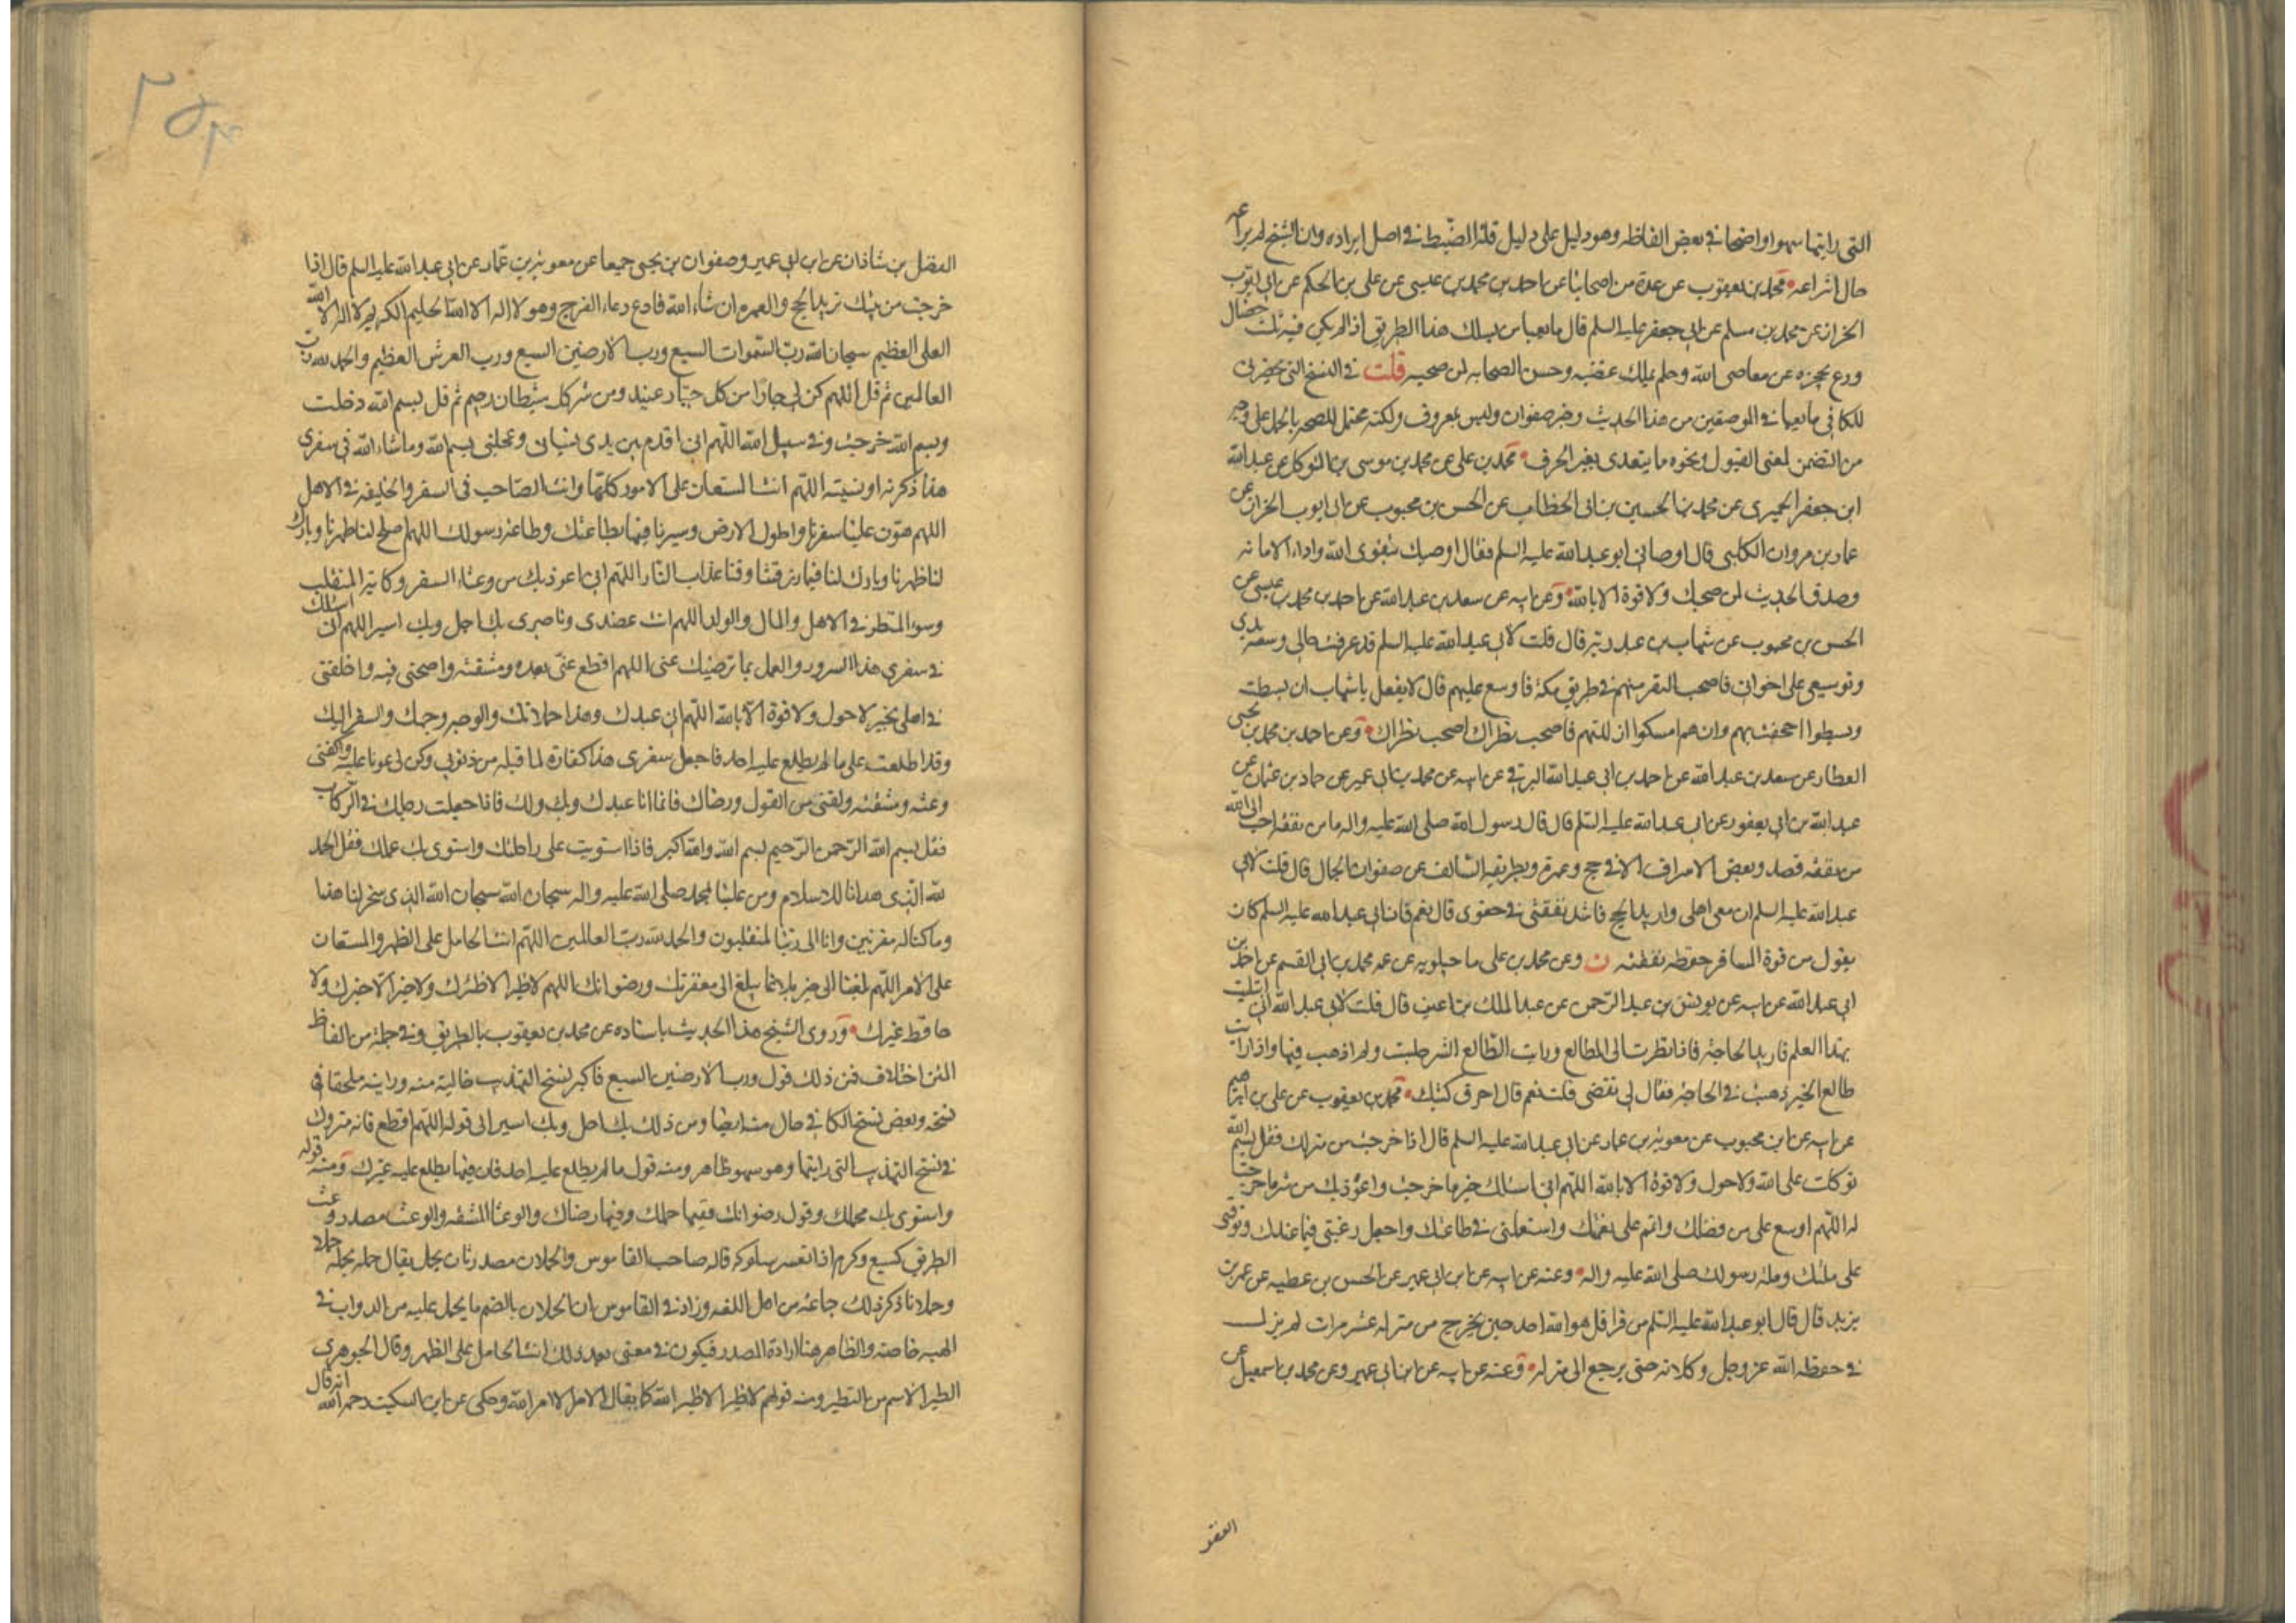 التى رايتها سهوا واضحا فى بعض الفاظه وهو دليل على دليل قلة الضبط فى اصل ايراده وان الشيخ لم يراعه
حال انتزاعه محمد بن يعقوب عن عدة من اصحابنا عن احمد بن محمد بن عيسى عن على بن الحكم عن ابى ايوب
الخزاز عن محمد بن مسلم عن ابى جعفر عليه السلم قال ما يعبا من يسلك هذا الطريق اذا لم يكن فيه ثلث خصال
ورع يحجزه عن معاصى الله وحلم يملك غضبه وحسن الصحابه لمن صحبه قلت فى النسخ التى تحضرنى
للكافى ما يعبا فى الموضعين من هذا الحديث وخبر صفوان وليس بمعروف ولكنه محتمل للصحه بالحمل على وجه
من التضمن لمعنى القبول ونحوه ما يتعدى بغير الحرف محمد بن على عن محمد بن موسى بن المتوكل عن عبد الله
ابن جعفر الحميرى عن محمد بن الحسين بن ابى الخطاب عن الحسن بن محبوب عن ابى ايوب الخزاز عن
عمار بن مروان الكلبى قال اوصانى ابو عبد الله عليه السلم فقال اوصيك بتقوى الله واداء الامانه
وصدق الحديث لمن صحبك ولا قوة الا بالله وعن ابيه عن سعد بن عبد الله عن احمد بن محمد بن عيسى عن
الحسن بن محبوب عن شهاب بن عبد ربه قال قلت لابى عبد الله عليه السلم قد عرفت حالى وسعة يدى
وتوسيعى على اخوانى فاصحب النفر منهم فى طريق مكة فاوسع عليهم قال لا تفعل يا شهاب ان بسطت
وبسطوا اجحفت بهم وان هم امسكوا اذللتهم فاصحب نظراك اصحب نظراك وعن احمد بن محمد بن يحيى
العطار عن سعد بن عبد الله عن احمد بن ابى عبد الله البرقى عن ابيه عن محمد بن ابى عمير عن حماد بن عثمان عن
عبد الله بن ابى يعفور عن ابى عبد الله عليه السلم قال قال رسول الله صلى الله عليه واله ما من نفقة احب الى الله
من نفقة قصد وبعض الاسراف الا فى حج وعمرة وبطريقه السالف عن صفوان الجمال قال قلت لابى
عبد الله عليه السلم ان معى اهلى واريد الحج فاشد نفقتى فى حقوى قال نعم فان ابى عبد الله عليه السلم كان
يقول من قوة المسافر حفظه نفقته ن وعن محمد بن على ماجيلويه عن عمه محمد بن ابى القسم عن احمد بن
ابى عبد الله عن ابيه عن يونس بن عبد الرحمن عن عبد الملك بن اعين قال قلت لابى عبد الله انى ابتليت
بهذا العلم فاريد الحاجة فاذا نظرت الى الطالع ورايت الطالع الشر جلست ولم اذهب فيها واذا رايت
طالع الخير ذهبت فى الحاجة فقال لى تقضى قلت نعم قال احرق كتبك محمد بن يعقوب عن على بن ابرهيم
عن ابيه عن ابن محبوب عن معوية بن عمار عن ابى عبد الله عليه السلم قال اذا خرجت من منزلك فقل بسم الله
توكلت على الله ولا حول ولا قوة الا بالله اللهم انى اسئلك خير ما خرجت واعوذ بك من شر ما خرجت
له اللهم اوسع على من فضلك واتم على نعمتك واستعملنى فى طاعتك واجعل رغبتى فيما عندك وتوفنى
على ملتك وملة رسولك صلى الله عليه واله وعنه عن ابيه عن ابن ابى عمير عن الحسن بن عطيه عن عمر بن
يزيد قال قال ابو عبد الله عليه السلم من قرا قل هو الله احد حين يخرج من منزله عشر مرات لم يزل
فى حفظ الله عز وجل وكلاءته حتى يرجع الى منزله وعنه عن ابيه عن ابن ابى عمير وعن محمد بن اسمعيل عن
الفضل بن شاذان عن ابن ابى عمير وصفوان بن يحيى جميعا عن معوية بن عمار عن ابى عبد الله عليه السلم قال اذا
خرجت من بيتك تريد الحج والعمره ان شاء الله فادع دعاء الفرج وهو لا اله الا الله الحليم الكريم لا اله الا الله
العلى العظيم سبحان الله رب السموات السبع ورب الارضين السبع ورب العرش العظيم والحمد لله رب
العالمين ثم قل اللهم كن لى جارا من كل جبار عنيد ومن شر كل شيطان رجيم ثم قل بسم الله دخلت
وبسم الله خرجت وفى سبيل الله اللهم انى اقدم بين يدى نسيانى وعجلتى بسم الله وما شاء الله فى سفرى
هذا ذكرته او نسيته اللهم انت المستعان على الامور كلها وانت الصاحب فى السفر والخليفه فى الاهل
اللهم هون علينا سفرنا واطو لنا الارض وسيرنا فيها بطاعتك وطاعة رسولك اللهم اصلح لنا ظهرنا وبارك
لنا ظهرنا وبارك لنا فيما رزقتنا وقنا عذاب النار اللهم انى اعوذ بك من وعثاء السفر وكابة المنقلب
وسوء المنظر فى الاهل والمال والولد اللهم انت عضدى وناصرى بك احل وبك اسير اللهم انى اسئلك
فى سفرى هذا السرور والعمل بما ترضيك عنى اللهم اقطع عنى بعده ومشقته واصحبنى فيه واخلفنى
فى اهلى بخير لا حول ولا قوة الا بالله اللهم انى عبدك وهذا حملانك والوجه وجهك والسفر اليك
وقد اطلعت على ما لم يطلع عليه احد فاجعل سفرى هذا كفارة لما قبله من ذنوبى وكن لى عونا عليه واكفنى
وعثه ومشقته ولقنى من القول ورضاك فانما انا عبدك وبك ولك فاذا جعلت رجلك فى الركاب
فقل بسم الله الرحمن الرحيم بسم الله والله اكبر فاذا استويت على راحلتك واستوى بك محملك فقل الحمد
لله الذى هدانا للاسلام ومن علينا بمحمد صلى الله عليه واله سبحان الله سبحان الله الذى سخر لنا هذا
وما كنا له مقرنين وانا الى ربنا لمنقلبون والحمد لله رب العالمين اللهم انت الحامل على الظهر والمستعان
على الامر اللهم بلغنا الى خير بلاغا يبلغ الى مغفرتك ورضوانك اللهم لا طير الا طيرك ولا خير الا خيرك ولا
حافظ غيرك وروى الشيخ هذا الحديث باسناده عن محمد بن يعقوب بالطريق وفى جملة من الفاظ
المتن اختلاف فمن ذلك قول ورب الارضين السبع فاكثر نسخ التهذيب خالية منه ورايته ملحقا فى
نسخه وبعض نسخ الكافى خال منه ايضا ومن ذلك بك احل وبك اسير الى قوله اللهم اقطع فانه متروك
فى نسخ التهذيب التى رايتها وهو سهو ظاهر ومنه قول ما لم يطلع عليه احد فان فيها يطلع عليه غيرك ومنه قوله
واستوى بك محملك وقول رضوانك ففيها حملك وفيها رضاك والوعثا المشقه والوعث مصدر وعث
الطريق كسمع وكرم اذا تعسر سلوكه قاله صاحب القاموس والحملان مصدر ثان لحمل يقال حمله يحمله حملا
وحملانا ذكر ذلك جماعة من اهل اللغه وزاد فى القاموس ان الحملان بالضم ما يحمل عليه من الدواب فى
الهبه خاصه والظاهر هنا ارادة المصدر فيكون فى معنى بعد ذلك انت الحامل على الظهر وقال الجوهرى
الطير الاسم من التطير ومنه قولهم لا طير الا طير الله كما يقال لا امر الا امر الله وحكى عن ابن السكيت رحمه الله انه قال